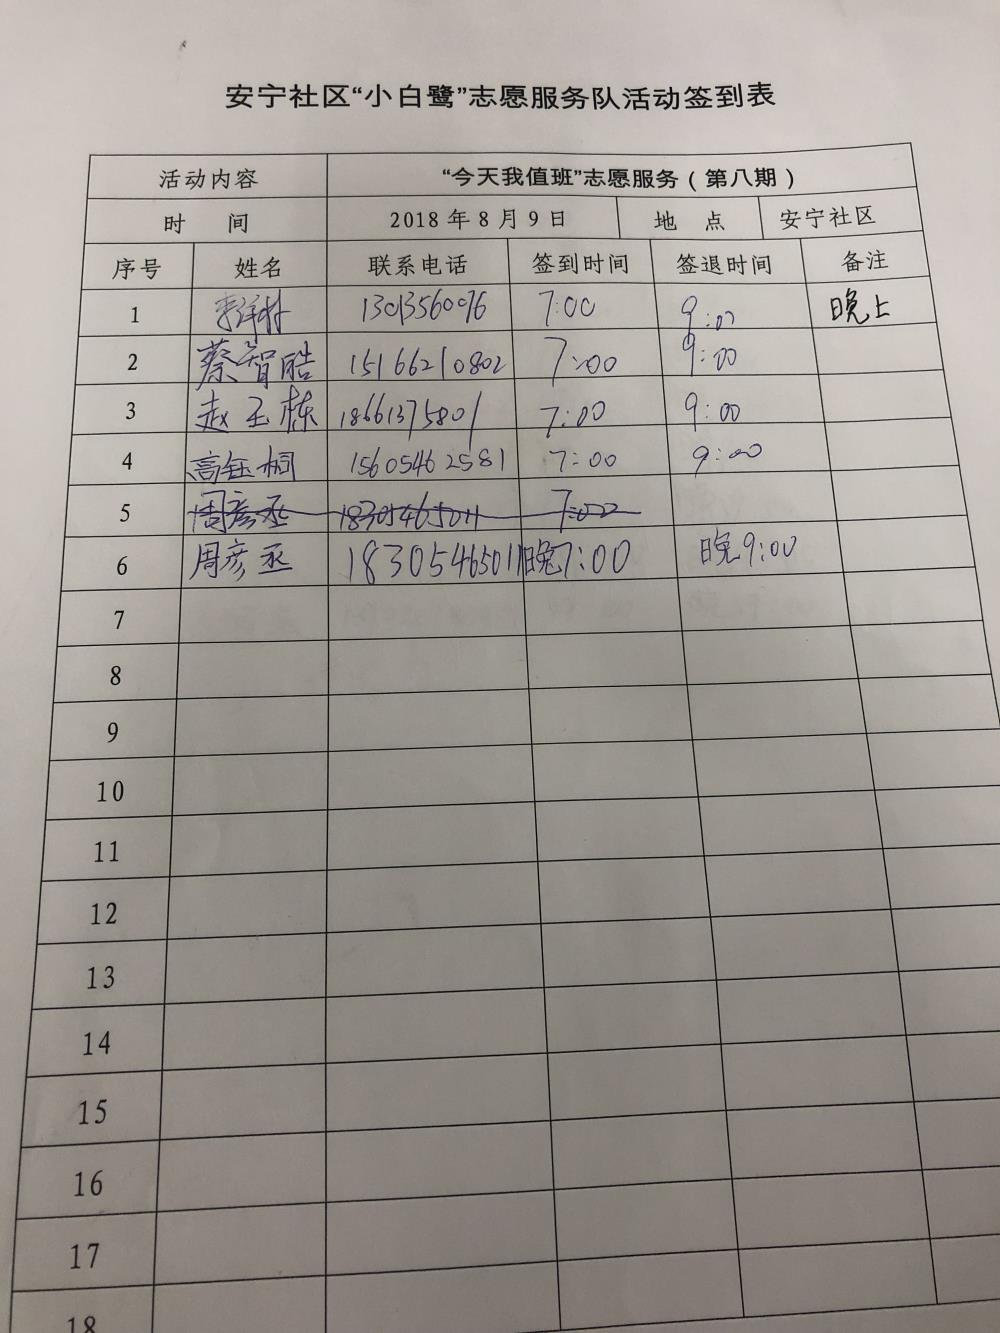 安宁社区“小白鹭”志愿服务队活动签到表
活动内容 “今天我值班”志愿服务（第八期）
时 间 2018年8月9日 地 点 安宁社区
序号 姓名 联系电话 签到时间 签退时间 备注
1 7:00 9:00 晚上
2 蔡智皓 15166210802 7:00 9:00
3 赵玉栋 18661375801 7:00 9:00
4 高钰桐 15605462581 7:00 9:00
5 周彦丞 18305465011 7:00
6 周彦丞 18305465011 晚7:00 晚9:00
7
8
9
10
11
12
13
14
15
16
17
18